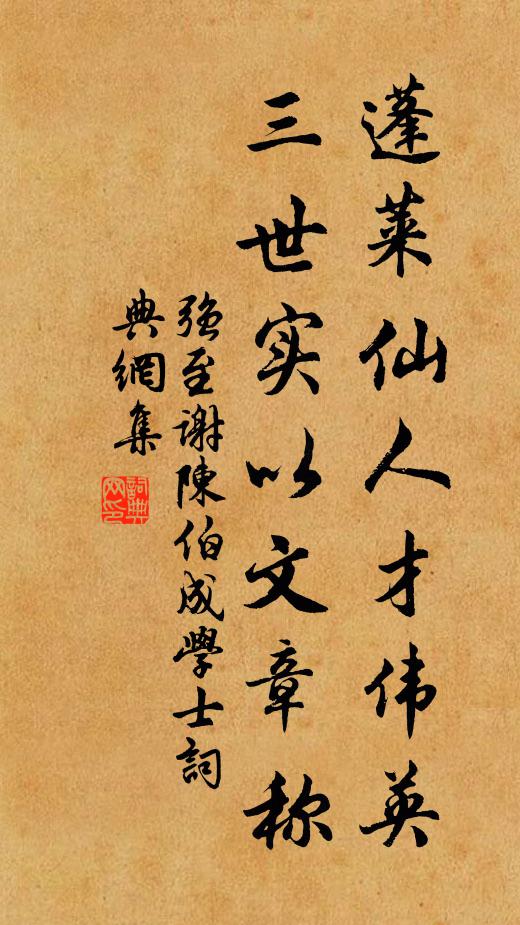 蓬莱仙人才伟英
三世实以文章称
强至謝陳伯成學士詞
典網集
詞典
网印